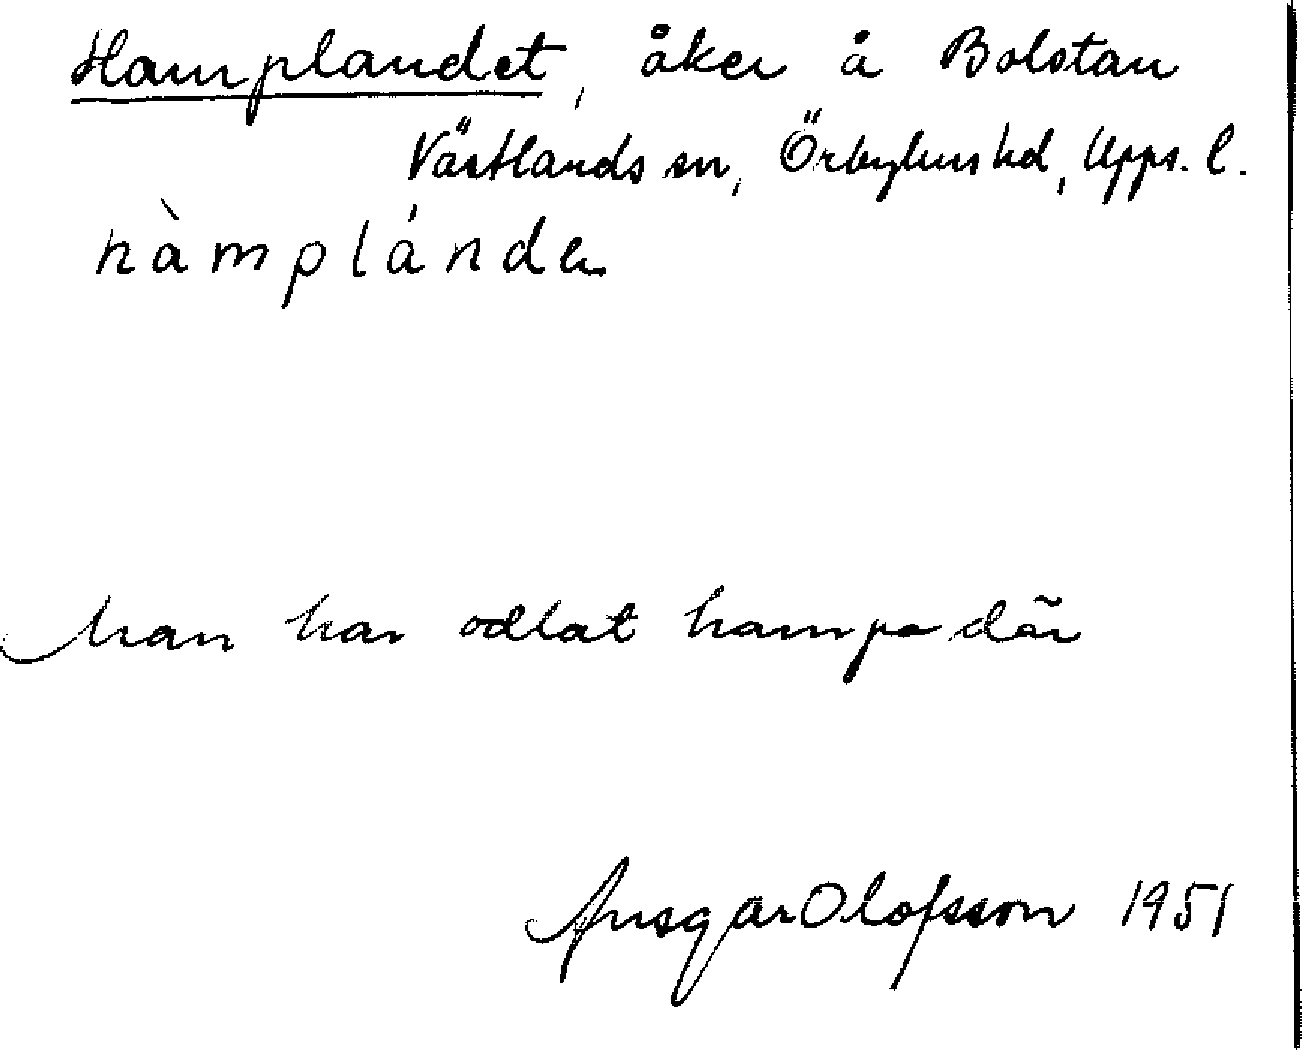 Hamplandet, åker å Bolstan
Västlands sn, Örbyhus hd, Upps. l.
hàmplánde
Man har odlat hampa där
Ansgar Olofsson 1951